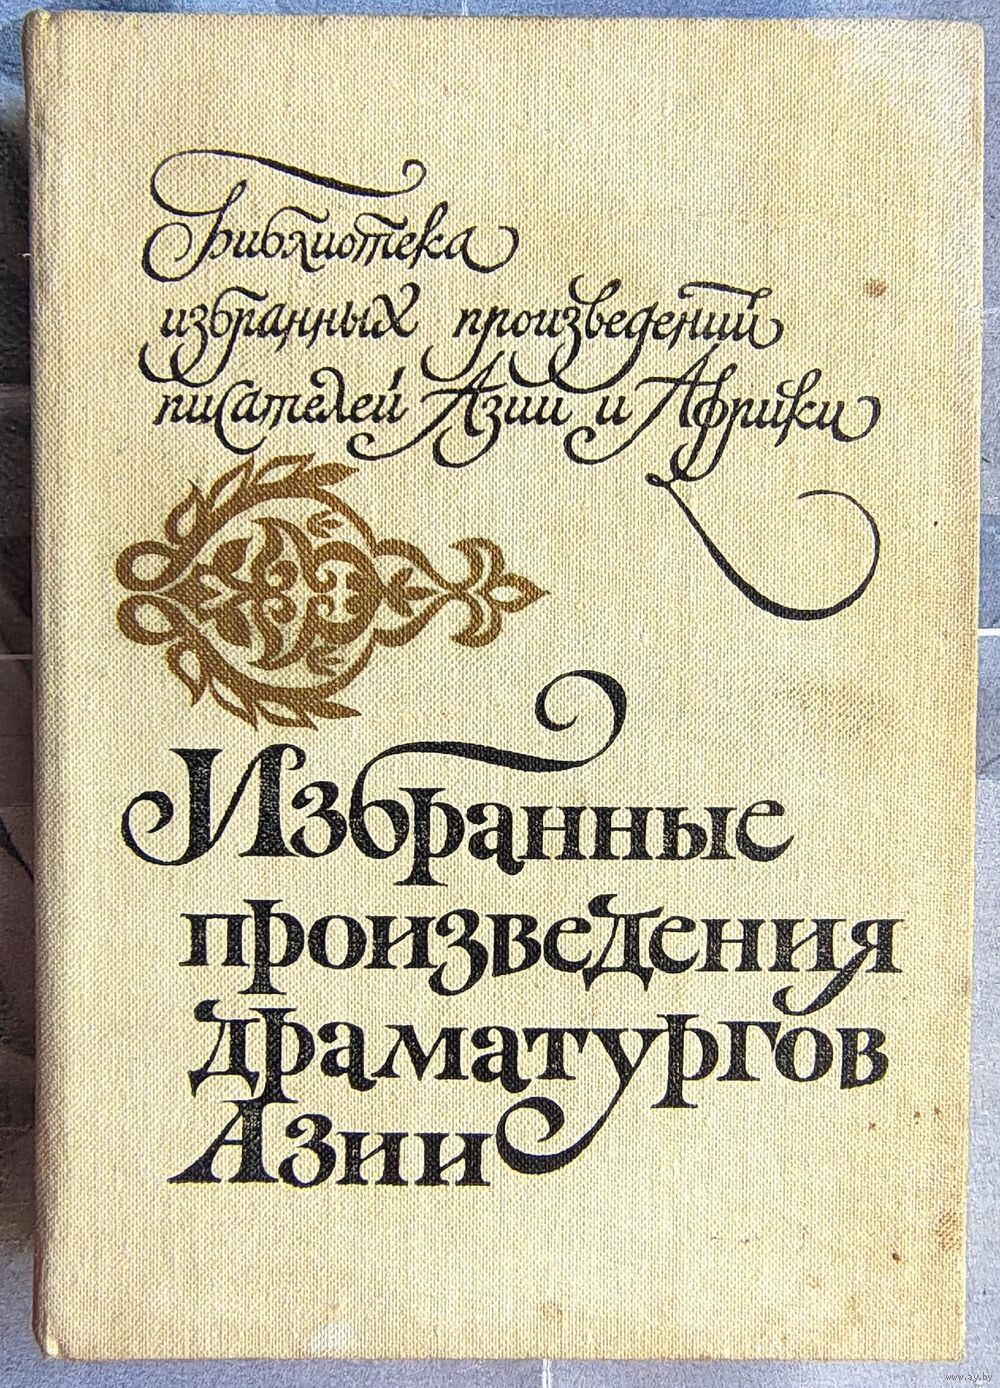 Библиотека
избранных произведений
писателей Азии и Африки
Избранные
произведения
драматургов
Азии
www.ay.by